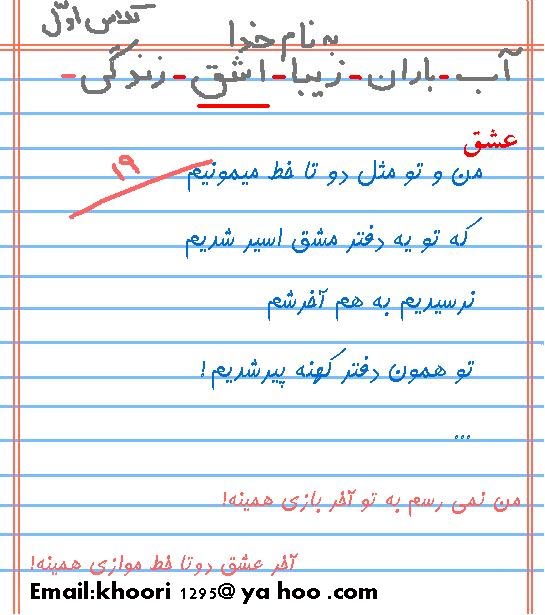 کلاس اوّل
به نام خدا
آب - باران - زیبا - اشق - زندگی -
عشق
۱۹
من و تو مثل دو تا خط میمونیم
که تو یه دفتر مشق اسیر شدیم
نرسیدیم به هم آخرشم
تو همون دفتر کهنه پیرشدیم!
...
من نمی رسم به تو آخر بازی همینه!
آخر عشق دوتا خط موازی همینه!
Email:khoori 1295@ ya hoo .com